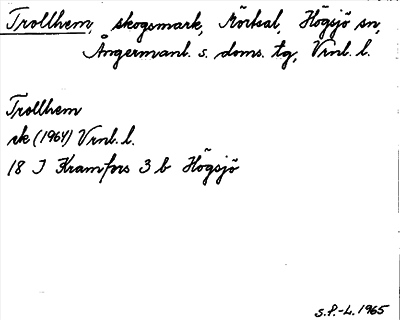 Trollhem, skogsmark, Rörkal, Högsjö sn,
Ångermanl. s. doms. tg, Vrnl. l.
Trollhem
rk (1964) Vrnl. l.
18 J Kramfors 3 b Högsjö
S.P.-L. 1965